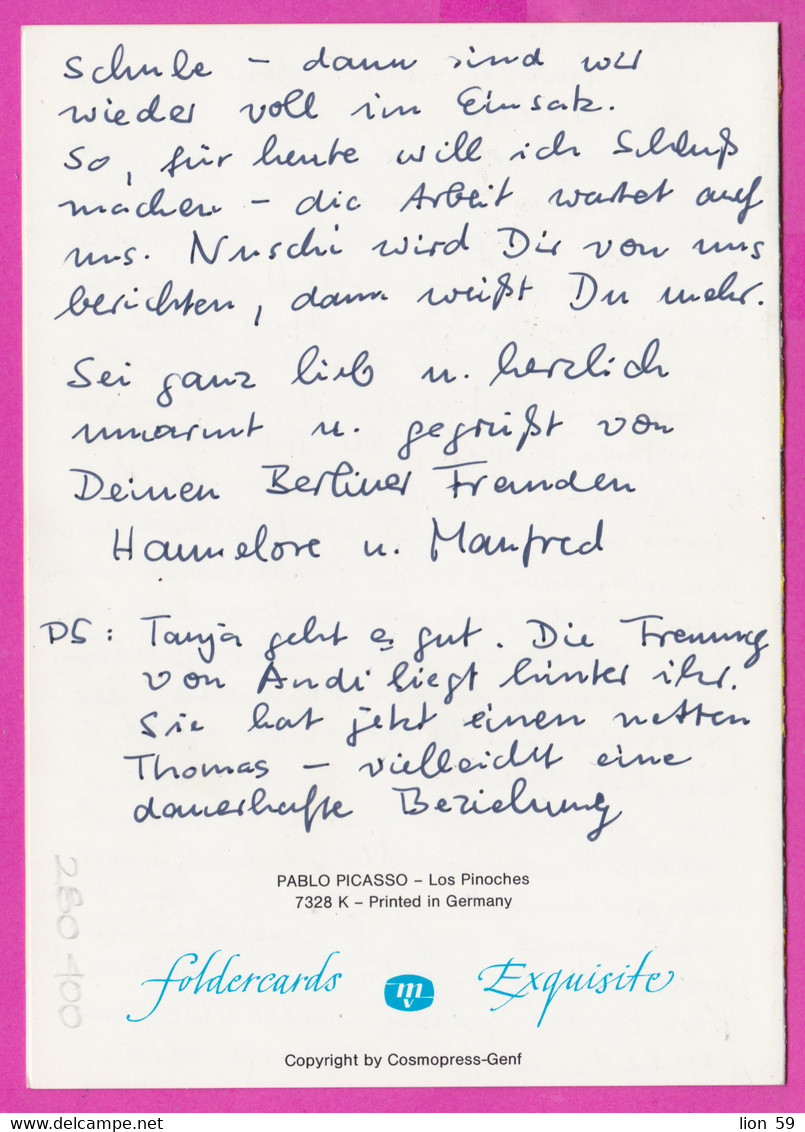 Schule – dann sind wir
wieder voll im Einsatz.
So, für heute will ich Schluß
machen – die Arbeit wartet auf
uns. Nuschi wird Dir von uns
berichten, dann weißt Du mehr.
Sei ganz lieb u. herzlich
umarmt u. gegrüßt von
Deinen Berliner Freunden
Hannelore u. Manfred
PS: Tanja geht es gut. Die Trennung
von Andi liegt hinter ihr.
Sie hat jetzt einen netten
Thomas – vielleicht eine
dauerhafte Beziehung
PABLO PICASSO – Los Pinoches
7328 K – Printed in Germany
foldercards mv Exquisite
Copyright by Cosmopress-Genf
280 400
lion 59